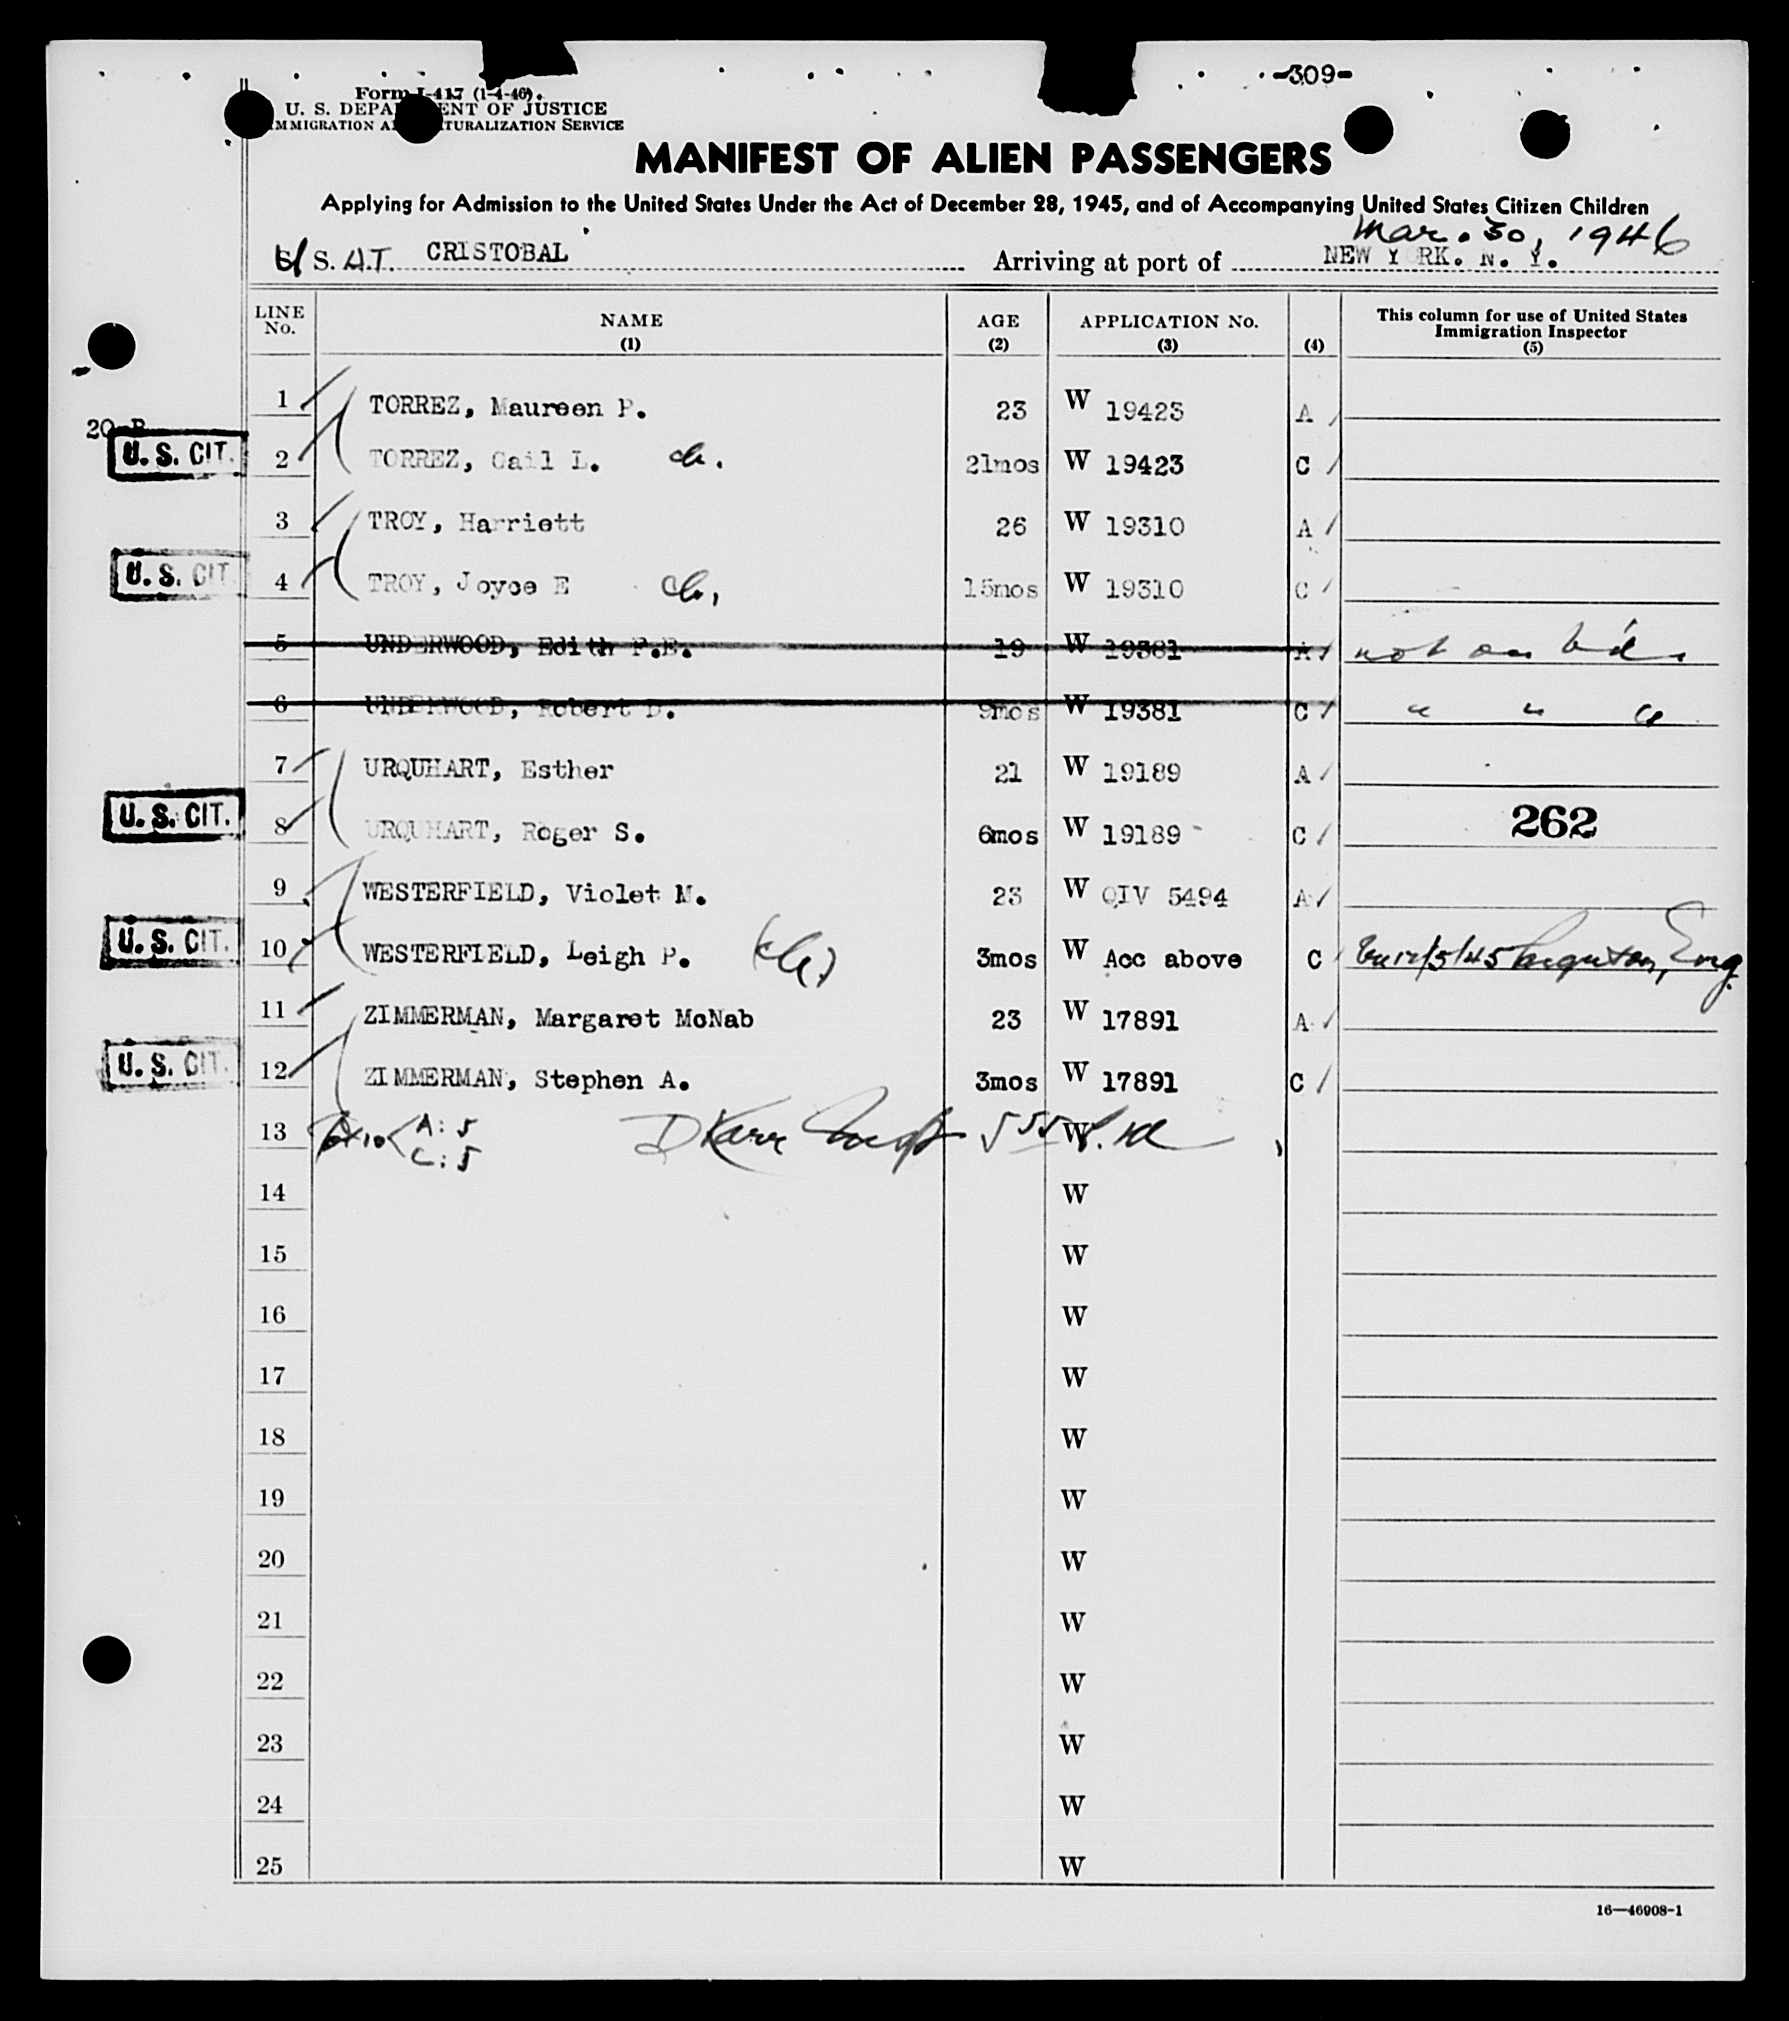 -309-
Form I-417 (1-4-46).
U. S. DEPA ENT OF JUSTICE
MMIGRATION A TURALIZATION SERVICE
MANIFEST OF ALIEN PASSENGERS
Applying for Admission to the United States Under the Act of December 28, 1945, and of Accompanying United States Citizen Children
Mar. 30, 1946
S. A.T. CRISTOBAL Arriving at port of NEW Y RK. N. Y.
LINE No. NAME (1) AGE (2) APPLICATION No. (3) (4) This column for use of United States Immigration Inspector (5)
1 TORREZ, Maureen P. 23 W 19423 A
20-B
U. S. CIT. 2 TORREZ, Gail L. ch. 21mos W 19423 C
3 TROY, Harriett 26 W 19310 A
U. S. CIT. 4 TROY, Joyce E ch. 15mos W 19310 C
5 UNDERWOOD, Edith P.E. 19 W 19381 A not on b'd
6 UNDERWOOD, Robert D. 9mos W 19381 C " " "
7 URQUHART, Esther 21 W 19189 A
U. S. CIT. 8 URQUHART, Roger S. 6mos W 19189 C 262
9 WESTERFIELD, Violet M. 23 W QIV 5494 A
U. S. CIT. 10 WESTERFIELD, Leigh P. (ch.) 3mos W Acc above C 12/5/45 Eng.
11 ZIMMERMAN, Margaret McNab 23 W 17891 A
U. S. CIT. 12 ZIMMERMAN, Stephen A. 3mos W 17891 C
13 10 A: 5 W
C: 5
14 W
15 W
16 W
17 W
18 W
19 W
20 W
21 W
22 W
23 W
24 W
25 W
16—46908-1